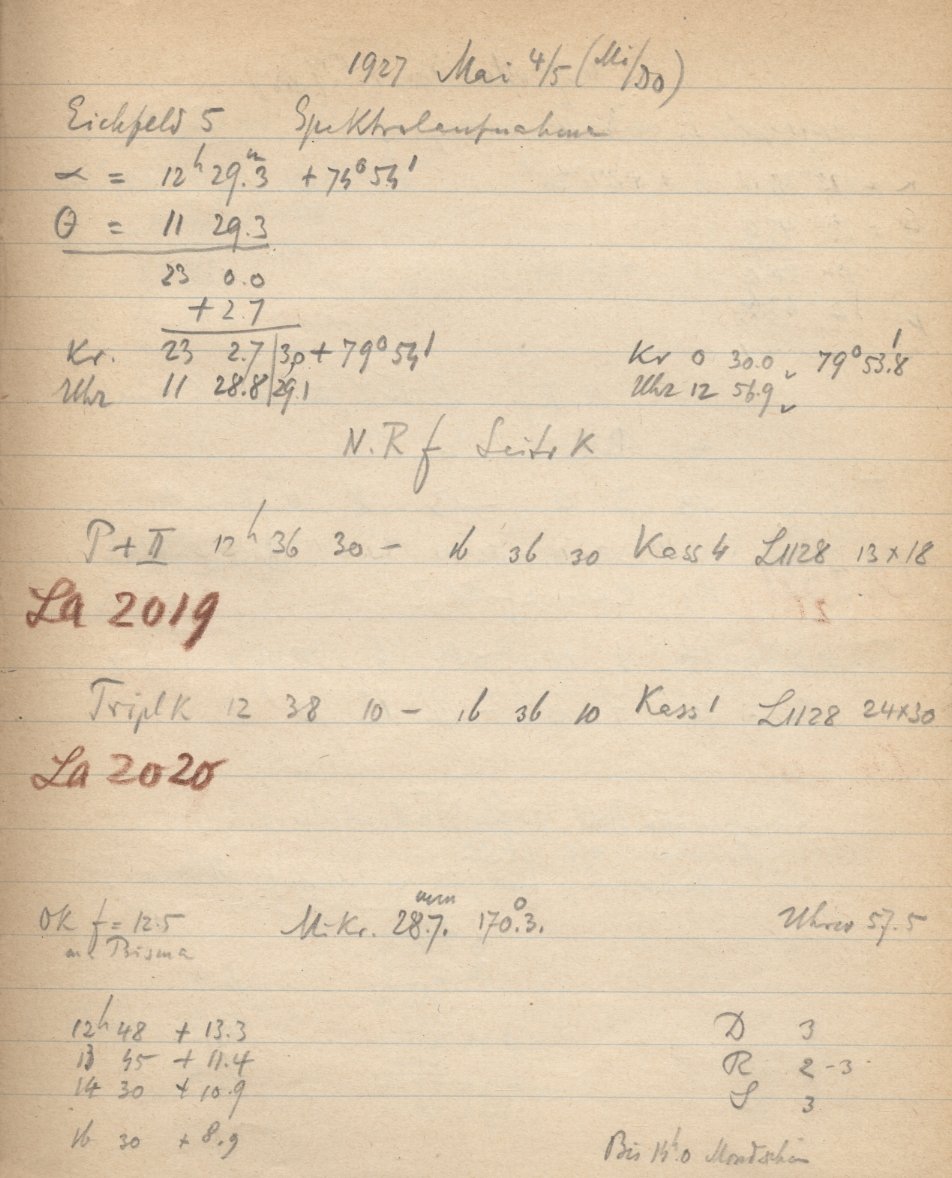 1927 Mai 4/5 (Mi/Do)
Eichfeld 5 Spektralaufnahme
α = 12h 29.m3 +74°54'
θ = 11 29.3
23 0.0
+2.7
Kr. 23 2.7 | 3,0 + 79°54' Kr 0 30.0 79°53.'8
Uhr 11 28.8 | 29,1 Uhr 12 56.9
N.R f Seitr K
P+II 12h 36 30 - 16 36 30 Kass 4 L1128 13×18
La 2019
Tripl K 12 38 10 - 16 36 10 Kass 1 L1128 24×30
La 2020
OK f = 12.5 Mikr. 28.7 mm 170°.3. 57.5
Prisma
12h 48 + 13.3 D 3
13 45 + 11.4 R 2-3
14 30 + 10.9 S 3
16 30 + 8.9 Bis 14h.0 Mondschein